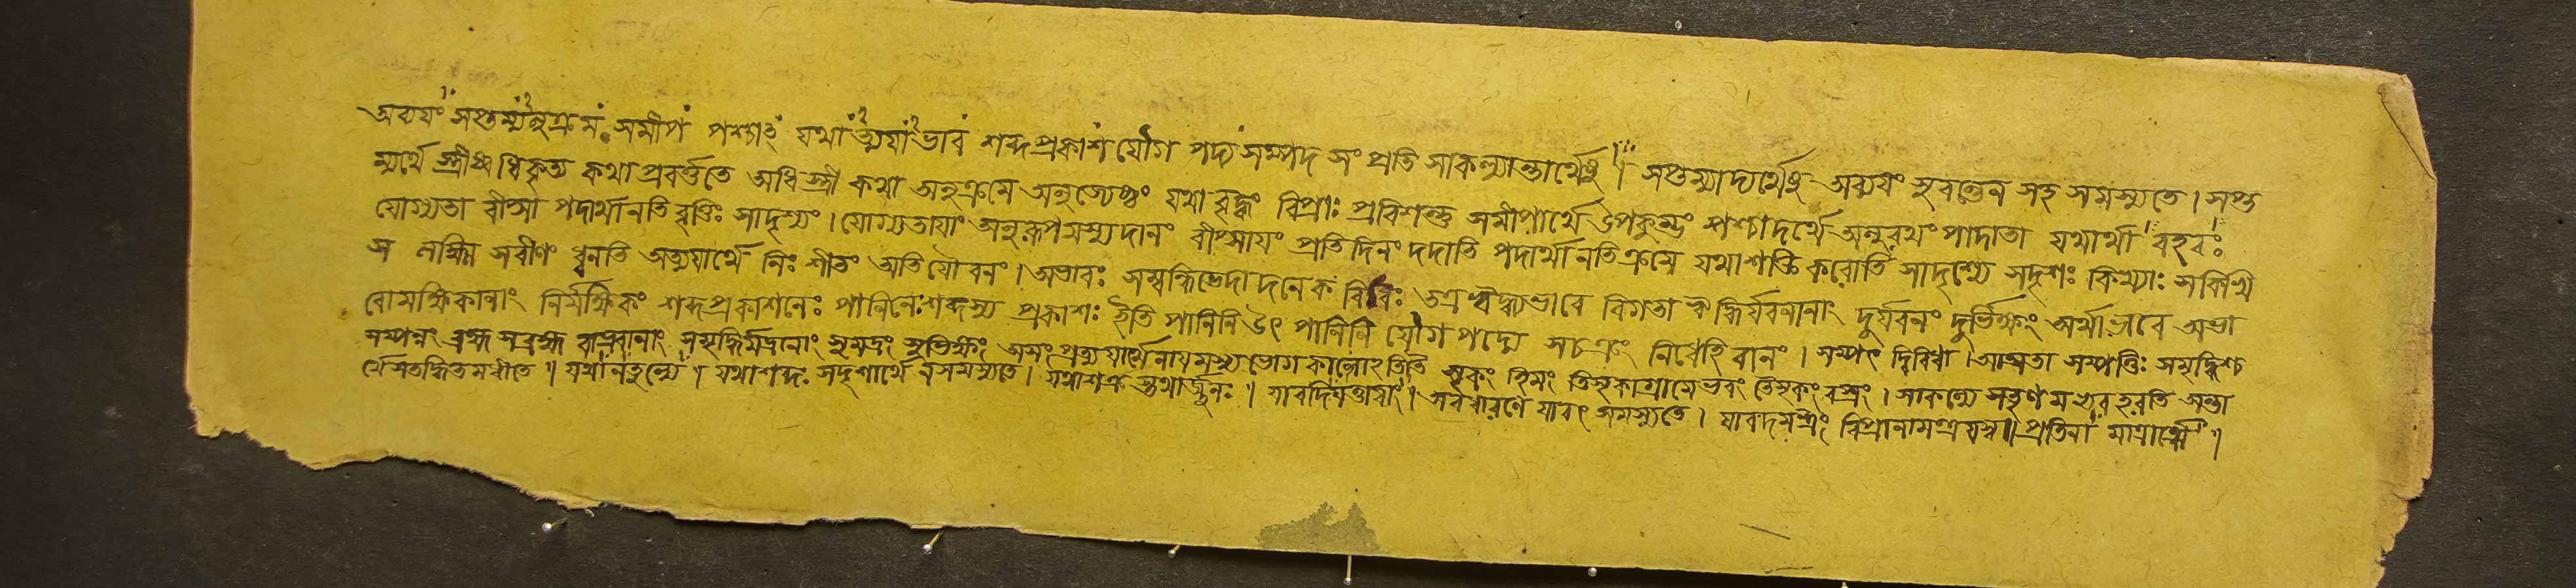 অব্যয়ং সপ্তম্যনুক্রম সমীপ পশ্চাৎ যথা ত্যয়া ভাব শব্দপ্রকাশ যৌগপদ্য সম্পদ সংপ্রতি সাকল্যান্তার্থেষু । সপ্তম্যাদ্যর্থেষু অব্যয়ং সুবন্তেন সহ সমস্যতে । সপ্ত
ম্যর্থে স্ত্রীষ্বধিকৃত্য কথা প্রবর্ত্ততে অধিস্ত্রী কথা অনুক্রমে অনুজ্যেষ্ঠং যথা বৃদ্ধং বিপ্রাঃ প্রবিশন্তু সমীপার্থে উপকুম্ভং পশ্চাদর্থে অনুরথং পাদাতা যথার্থা বহবঃ
যোগ্যতা বীপ্সা পদার্থানতিবৃত্তিঃ সাদৃশ্যং । যোগ্যতায়াং অনুরূপমস্য দানং বীপ্সায়ং প্রতিদিনং দদাতি পদার্থানতিক্রমে যথাশক্তি করোতি সাদৃশ্যে সদৃশঃ কিখ্যাঃ সকিখি
অত্যয়ার্থে নিঃশীতং অতিযৌবনং । অভাবঃ সম্বন্ধিভেদাদনেকবিধঃ তত্র ঋদ্ধ্যভাবে বিগতা ঋদ্ধির্যবনানাং দুর্যবনং দুর্ভিক্ষং অর্থাভাবে অভা
বোমক্ষিকানাং নির্মক্ষিকং শব্দপ্রকাশনেঃ পানিনেঃ শব্দস্য প্রকাশঃ ইতি পানিনি তৎ পানিনি যৌগপদ্যে সচক্রং নিধেহি বানং । সম্পৎ দ্বিবিধা । আত্মতা সম্পত্তিঃ সমৃদ্ধিশ্চ
সম্পন্নং ব্রহ্ম সব্রহ্ম বাভ্রবানাং সমৃদ্ধির্মদ্রানাং সুমদ্রং সুভিক্ষং ভোগকালোঽতি তিসৃকাগ্রামেভবং তৈসৃকং বস্ত্রং । সাকল্যে সতৃণমভ্যবহরতি অন্তা
র্থে সতদ্ধিতমধীতে ॥ যথানতুল্যে । যথাশব্দঃ সদৃশার্থে ন সমস্যতে । যথাশক্র স্তথার্জ্জুনঃ । যাবদিয়ত্তায়াং । অবধারণে যাবৎ সমস্যতে । যাবদমত্রং বিপ্রানামন্ত্রয়স্ব ॥ প্রতিনা মাত্রার্থে ।